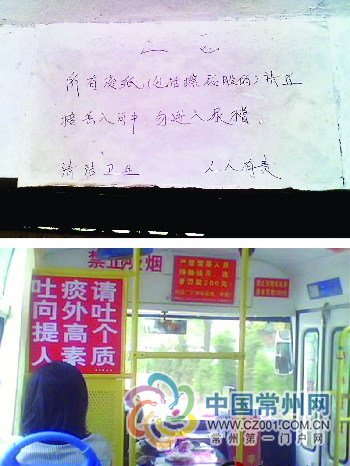 所有废纸(包括擦屁股的)请直
接丢入坑中 勿进入尿槽.
清洁卫生 人人有责
禁止吸烟
者罚款200元
吐痰请
向外吐
提高个
人素质
中国常州网
WWW.CZ001.COM.CN
常州第一门户网